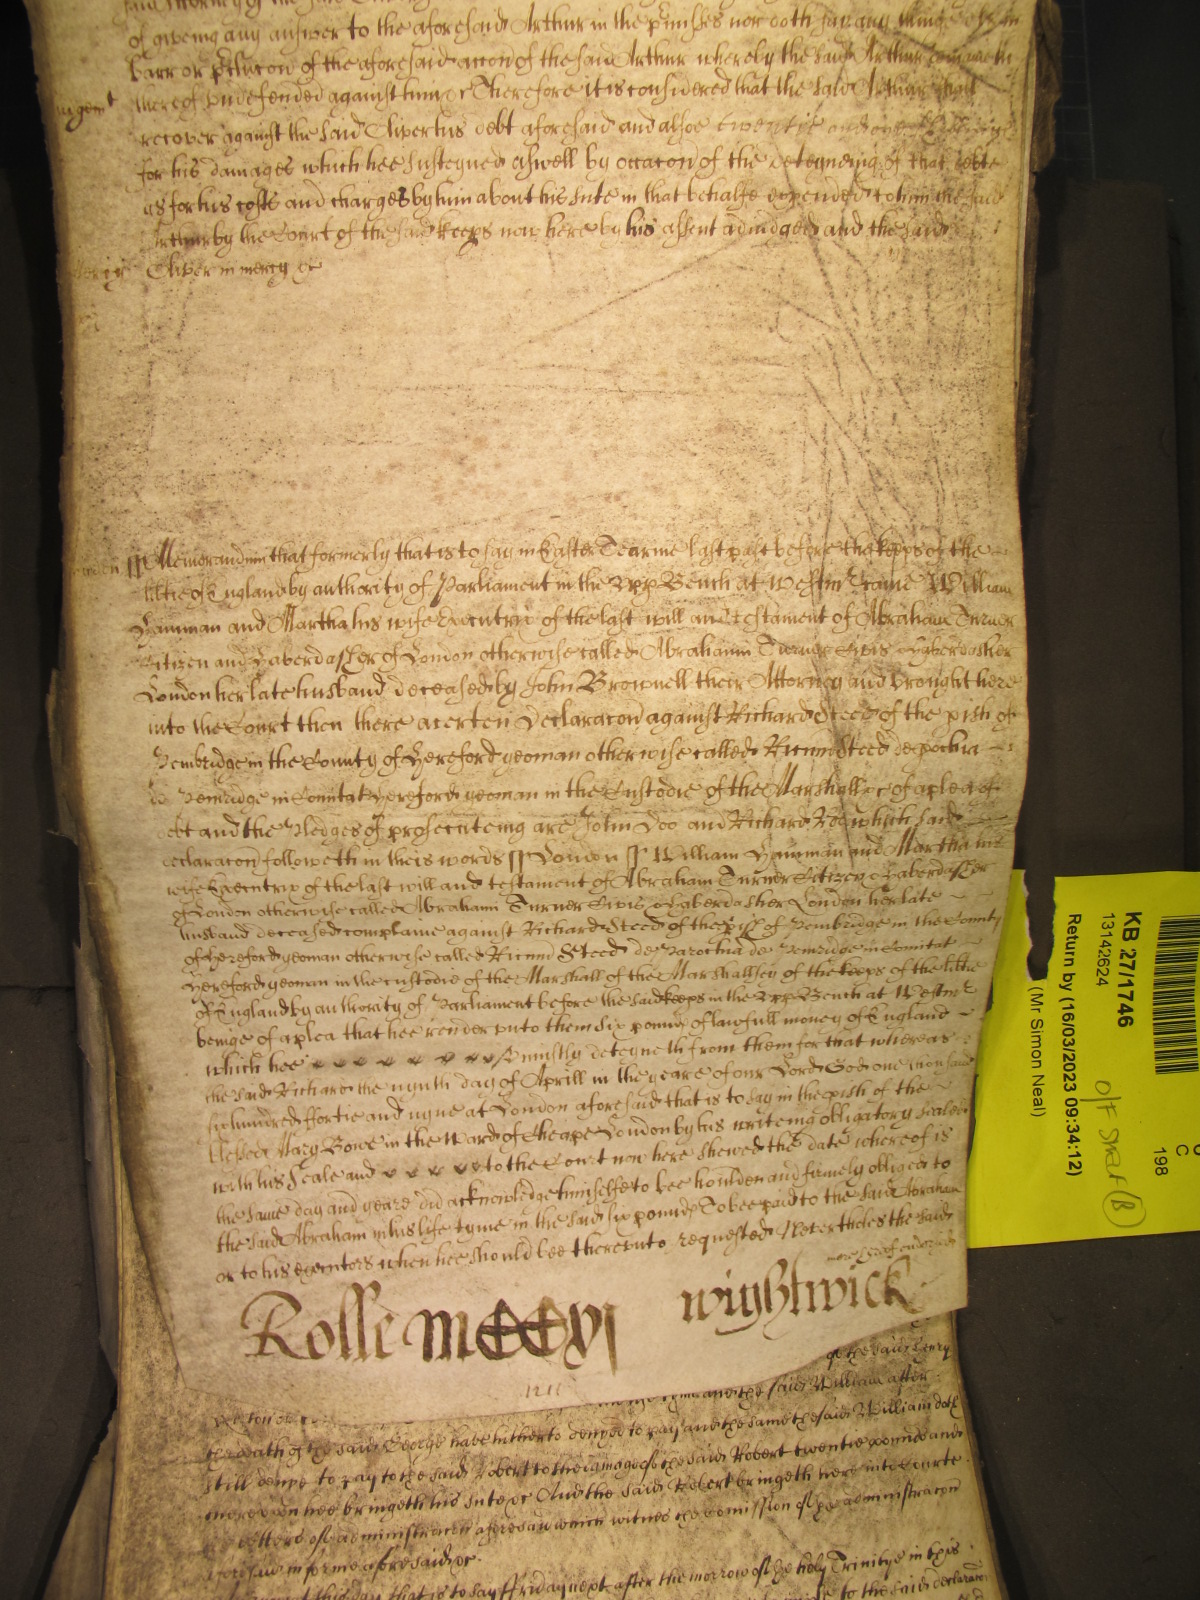 of giveing any answer to the aforesaid Arthur in the p'misses nor doth say any thinge
barr or p'clucon of the aforesaid accon of the said Arthur whereby the said Arthur remaineth
thereof vndefended against him &c Therefore it is considered that the said Arthur shall
recover against the said Oliver his debt aforesaid and alsoe twentie and one shillings
for his damages which hee susteyned aswell by occacon of the deteyneing of that debte
as for his costs and charges by him about his sute in that behalfe expended to him the said
Arthur by the Court of the said keeps now here by his assent adiudged and the said
Oliver in mercy &c
Memorandum that formerly that is to say in Easter Tearme last past before the keeps of the
lib'tie of England by authority of Parliament in the vpp Bench at Westm' Came William
and Martha his wife Executrix of the last will and testament of Abraham Turner
Citizen and Haberdasher of London otherwise called Abraham Turner Civis & Haberdasher
London her late husband deceased by John Brownell their Attorney and brought here
into the Court then there a certen Declaracon against Richard Steed of the p'ish of
Pembridge in the County of Hereford yeoman otherwise called Ricum Steed de pochia
de Pembridge in Comitat Hereford yeoman in the Custodie of the Marshall &c of a plea of
debt and the Pledges of prosecuteing are John Doo and Richard Roo which said
declaracon followeth in theis words ss London ss William and Martha his
wife Executrix of the last will and testament of Abraham Turner Citizen & Haberdasher
of London otherwise called Abraham Turner Civis & Haberdasher London her late
husband deceased complaine against Richard Steed of the p'ish of Pembridge in the County
of Hereford yeoman otherwise called Ricum Steed de Parochia de Pembridge in Comitat
Hereford yeoman in the custodie of the Marshall of the Marshallsey of the keeps of the lib'tie
of England by authority of Parliament before the said keeps in the vpp Bench at Westm'
beinge of a plea that hee render vnto them six pounds of lawfull money of England
which hee vniustly deteyneth from them for that whereas
the said Richard the nynth day of Aprill in the yeare of our Lord God one thousand
six hundred fortie and nyne at London aforesaid that is to say in the p'ish of the
blessed Mary Bowe in the Ward of Cheape London by his writeing obligatory sealed
with his Seale and to the Court now here shewed the date whereof is
the same day and yeare did acknowledge himselfe to bee houlden and firmely obliged to
the said Abraham in his life tyme in the said six pounds To bee paid to the said Abraham
or to his executors when hee should bee therevnto requested Nevertheles the said
Rolle
wightwick
of the said Henry
the said William after
the death of the said George have hitherto denyed to pay and the same the said William doth
still denye to pay to the said Robert to the damage of the said Robert twentie pounds and
therevpon hee bringeth his sute &c And the said Robert bringeth here into Courte
the letters of administracon aforesaid which witnes the comission of the administracon
aforesaid in forme aforesaid &c
that is to say ffriday next after the morrow of the holy Trinitye in this
to the said declaracon
KB 27/1746
13142624
Return by (16/03/2023 09:34:12)
(Mr Simon Neal)
198
C